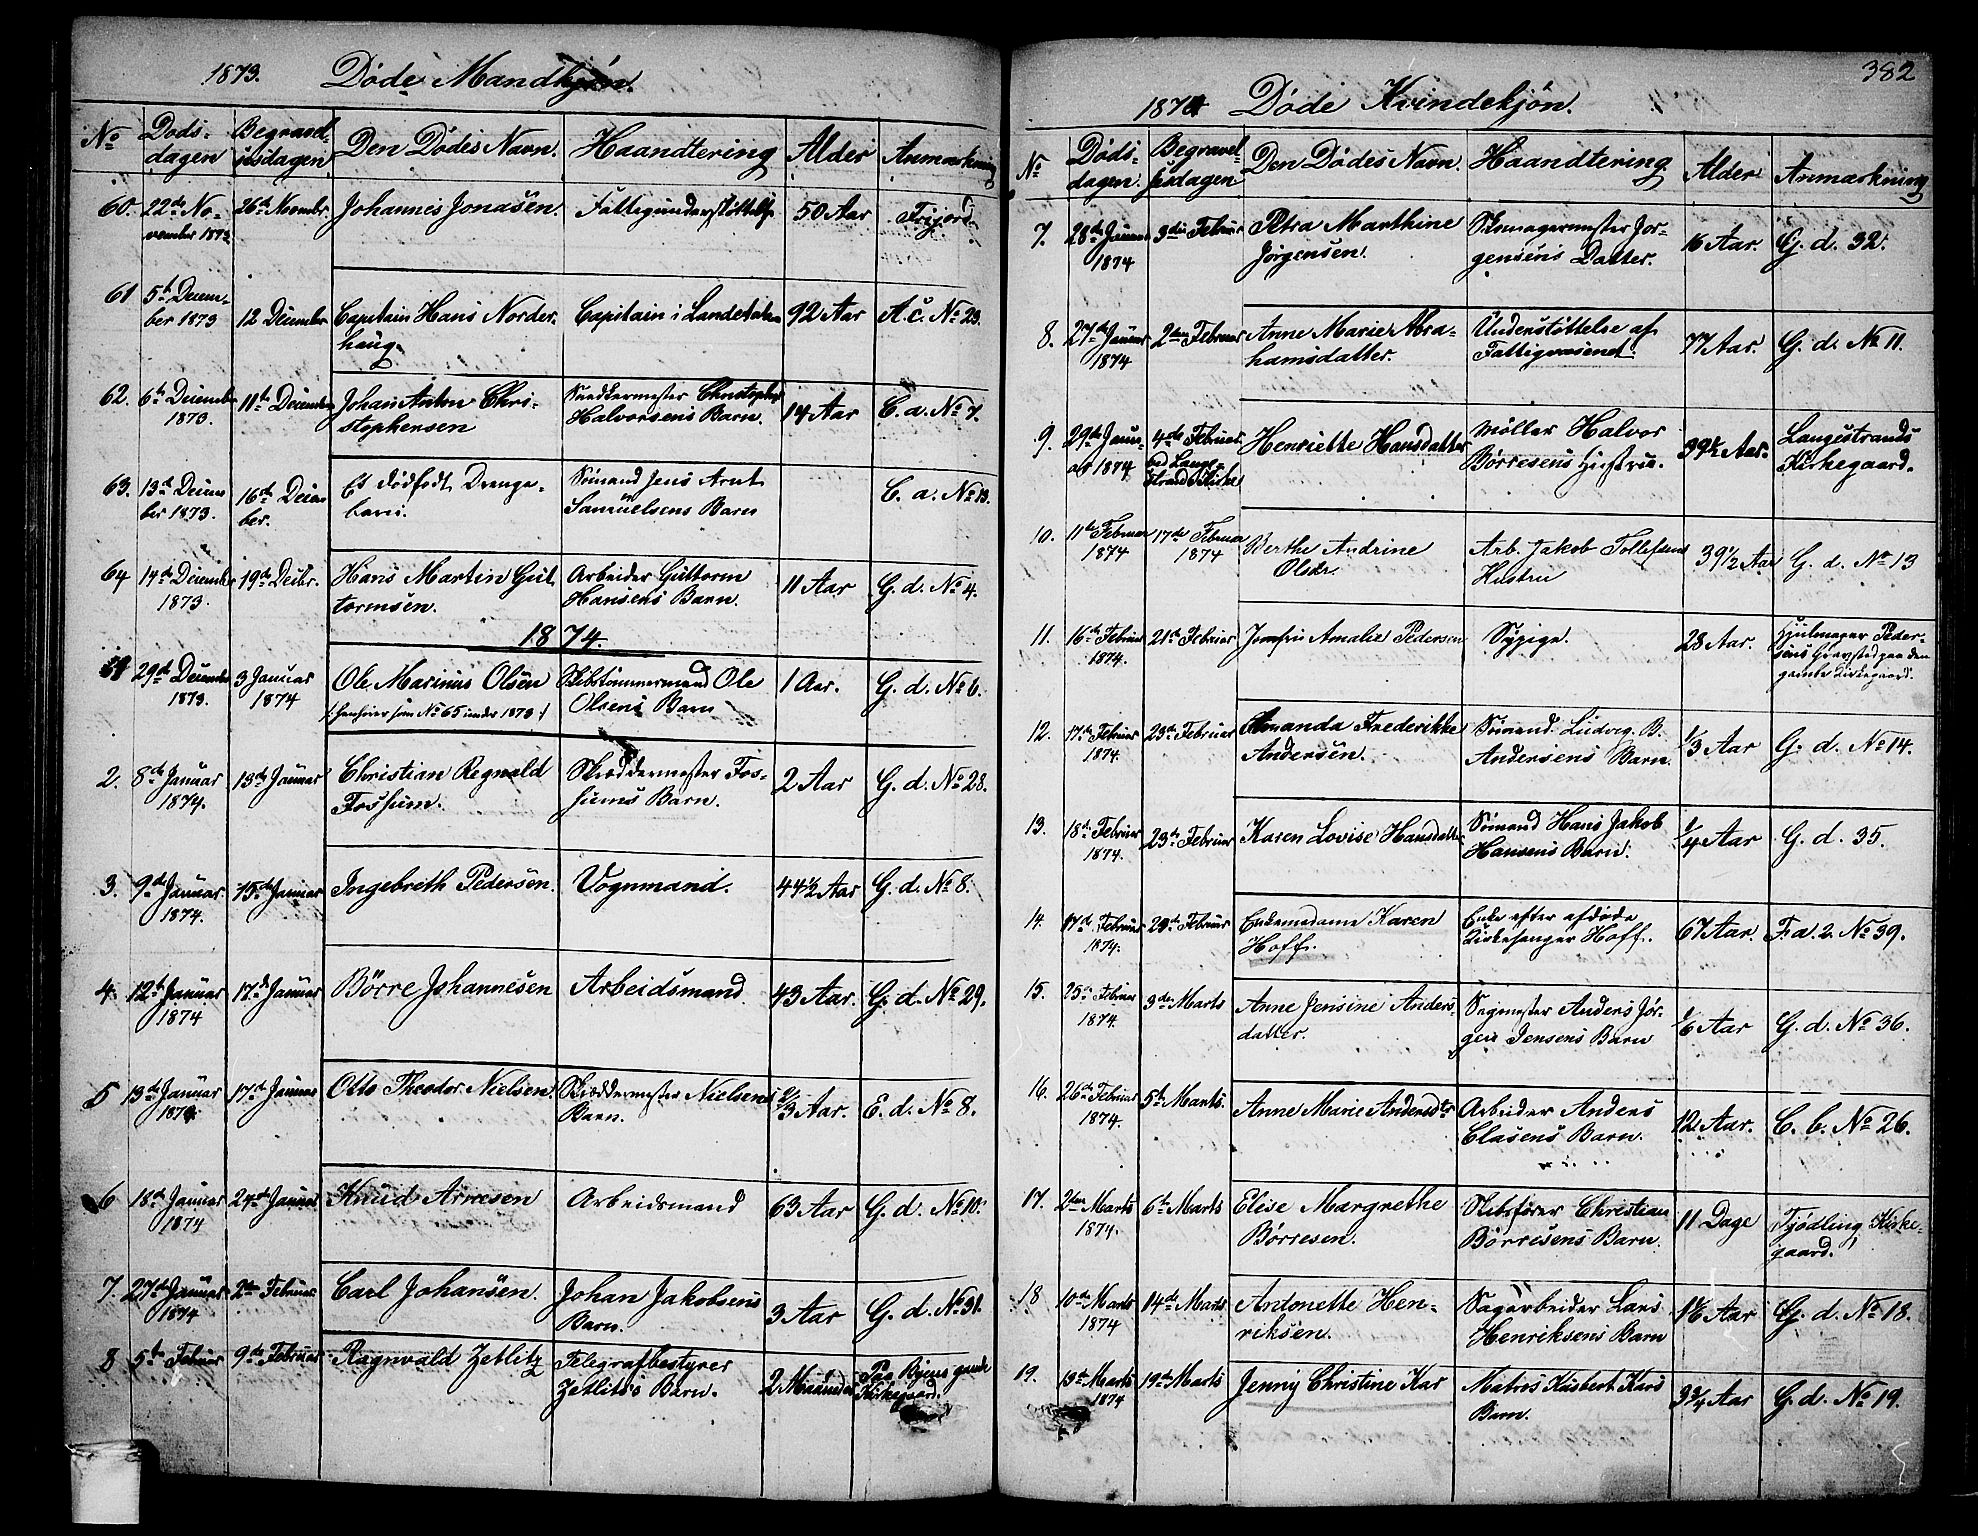 1873. Døde Mandkjøn.
No Døds-dagen Begravel-sesdagen Den Dødes Navn. Haandtering Alder Anmærkning
60. 22de No- 26de Novembr. Johannes Jonasen. Fattigunderstøttelse 50 Aar Frijord.
vember 1873
61 5te Decem- 12 December Capitain Hans Norder- Capitain i Landetaten 92 Aar A.c. No 23.
ber 1873 haug.
62. 6te December 11te December Johan Anton Chri- Snedkermester Christopher 14 Aar C. a. No 7.
1873. stophersen Halvorsens Barn.
63. 13de Decem- 16de Decem- Et dødfødt Drenge- Sømand Jens Arnt C. a. No 13.
ber 1873. ber. barn. Samuelsens Barn
64 14de December 19de Decbr. Hans Martin Gut- Arbeider Guttorm 11 Aar G. d. No 4.
1873. tormsen. Hansens Barn.
1874.
29de December 3 Januar Ole Marinus Olsen Skibstømmermand Ole 1 Aar. G. d. No 6.
1873. 1874 /: henhører som No 65 under 1873 :/ Olsens Barn
2. 8de Januar 13de Januar Christian Regnald Skræddermester Fos- 2 Aar G. d. No 28.
1874. Fosshum. hums Barn.
3. 9de Januar 15de Januar Ingebreth Pedersen. Vognmand. 44 1/2 Aar G. d. No 8.
1874.
4. 12te Januar 17de Januar Børre Johannesen Arbeidsmand 43 Aar. G. d. No 29.
1874
5 13de Januar 17de Januar Otto Theodor Nielsen. Skræddermester Nielsens 2/3 Aar. E. d. No 8.
1874. Barn.
6 18de Januar 24de Januar Knud Arnesen Arbeidsmand 63 Aar G. d. No 10.
1874
7. 27de Januar 2den Februar Carl Johansen. Johan Jakobsens 3 Aar G. d. No 31.
1874 Barn.
8 5te Februar 9de Februar Ragnvald Zetlitz Telegrafbestyrer 2 Maaneder Paa Byens gamle
Zetlitzs Barn. Kirkegaard.
382
1874 Døde Kvindekjøn.
No Døds-dagen. Begravel-sesdagen Den Dødes Navn. Haandtering. Alder Anmærkning
7. 28de Januar 3die Februar Petra Marthine Skomagermester Jør- 16 Aar. G. d. 32.
1874 Jørgensen. gensens Datter.
8. 27de Januar 2den Februar Anne Marie Abra- Understøttelse af 77 Aar. G. d. No 11.
1874 hamsdatter. Fattigvæsenet.
9. 29de Janu- 4de Februar Henriette Hansdatter Møller Halvor 39 1/2 Aar. Langestrands
ar 1874 ved Lange- Børresens Hustru. Kirkegaard.
strand Kirke
10. 11te Februar 17de Februar Berthe Andrine Arb. Jakob Tollefsens 39 1/2 Aar G. d. No 13
1874 1874 Olsdr. Hustru
11. 16de Februar 21de Februar Jomfru Amalie Pedersen Sypige. 28 Aar. Hjulmager Peder-
1874. sens Gravsted paa den
gamle Kirkegaard.
12. 17de Februar 23de Februar Amanda Frederikke Sømand Ludvig B. 1/3 Aar G. d. No 14.
1874. Andersen. Andersens Barn.
13. 18de Februar 23de Februar Karen Lovise Hansdatter Sømand Hans Jakob 1/4 Aar G. d. 35.
1874. Hansens Barn.
14. 17de Februar 23de Februar Enkemadame Karen Enke efter afdøde 67 Aar. F. a. 2. No 39.
1874. Hoff. Kirkesanger Hoff.
15. 25de Februar 3die Marts Anne Jensine Anders- Sagmester Anders Jør- 1/6 Aar G. d. No 36.
1874. datter. gen Jensens Barn
16. 26de Februar 5te Marts. Anne Marie Andersdtr Arbeider Anders 12 Aar. C. b. No 26.
1874. Clasens Barn.
17. 2den Marts 6te Marts Elise Margrethe Skibsfører Christian 11 Dage Tjødling Kirke-
1874. Børresen. Børresens Barn. gaard.
18 10de Marts 14de Marts Antonette Hen- Sagarbeider Lars 1 1/6 Aar G. d. No 18.
1874 riksen. Henriksens Barn
19. 13de Marts 19de Marts Jenny Christine Kar Matros Kasbert Kars 3 3/4 Aar G. d. No 19.
1874 Barn.